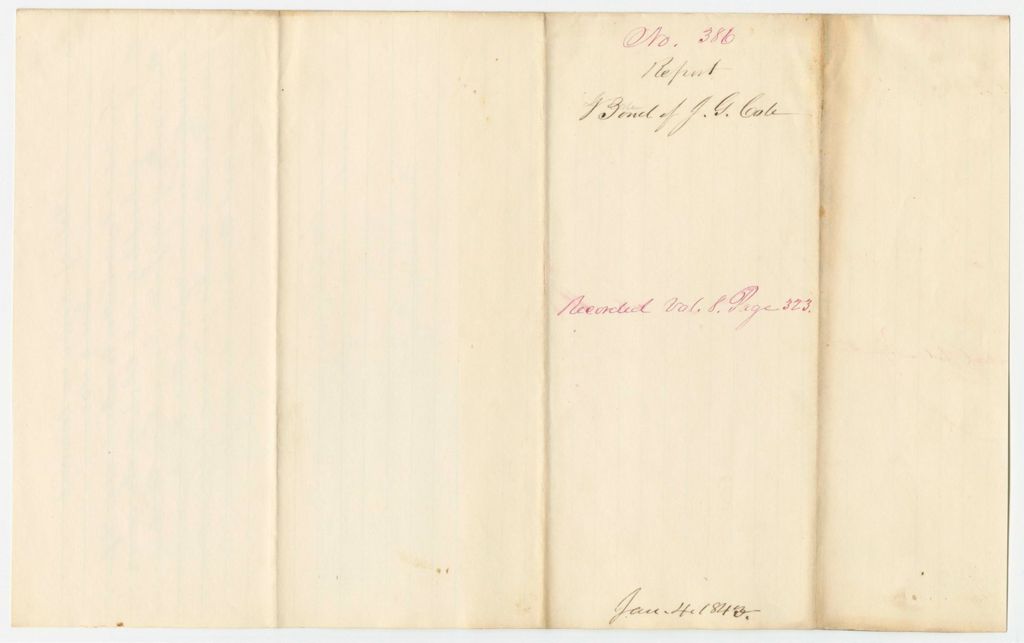 No. 386
Report
& Bond of J. G. Cole
Recorded Vol. 8. Page 323.
Jan. 4. 1843.